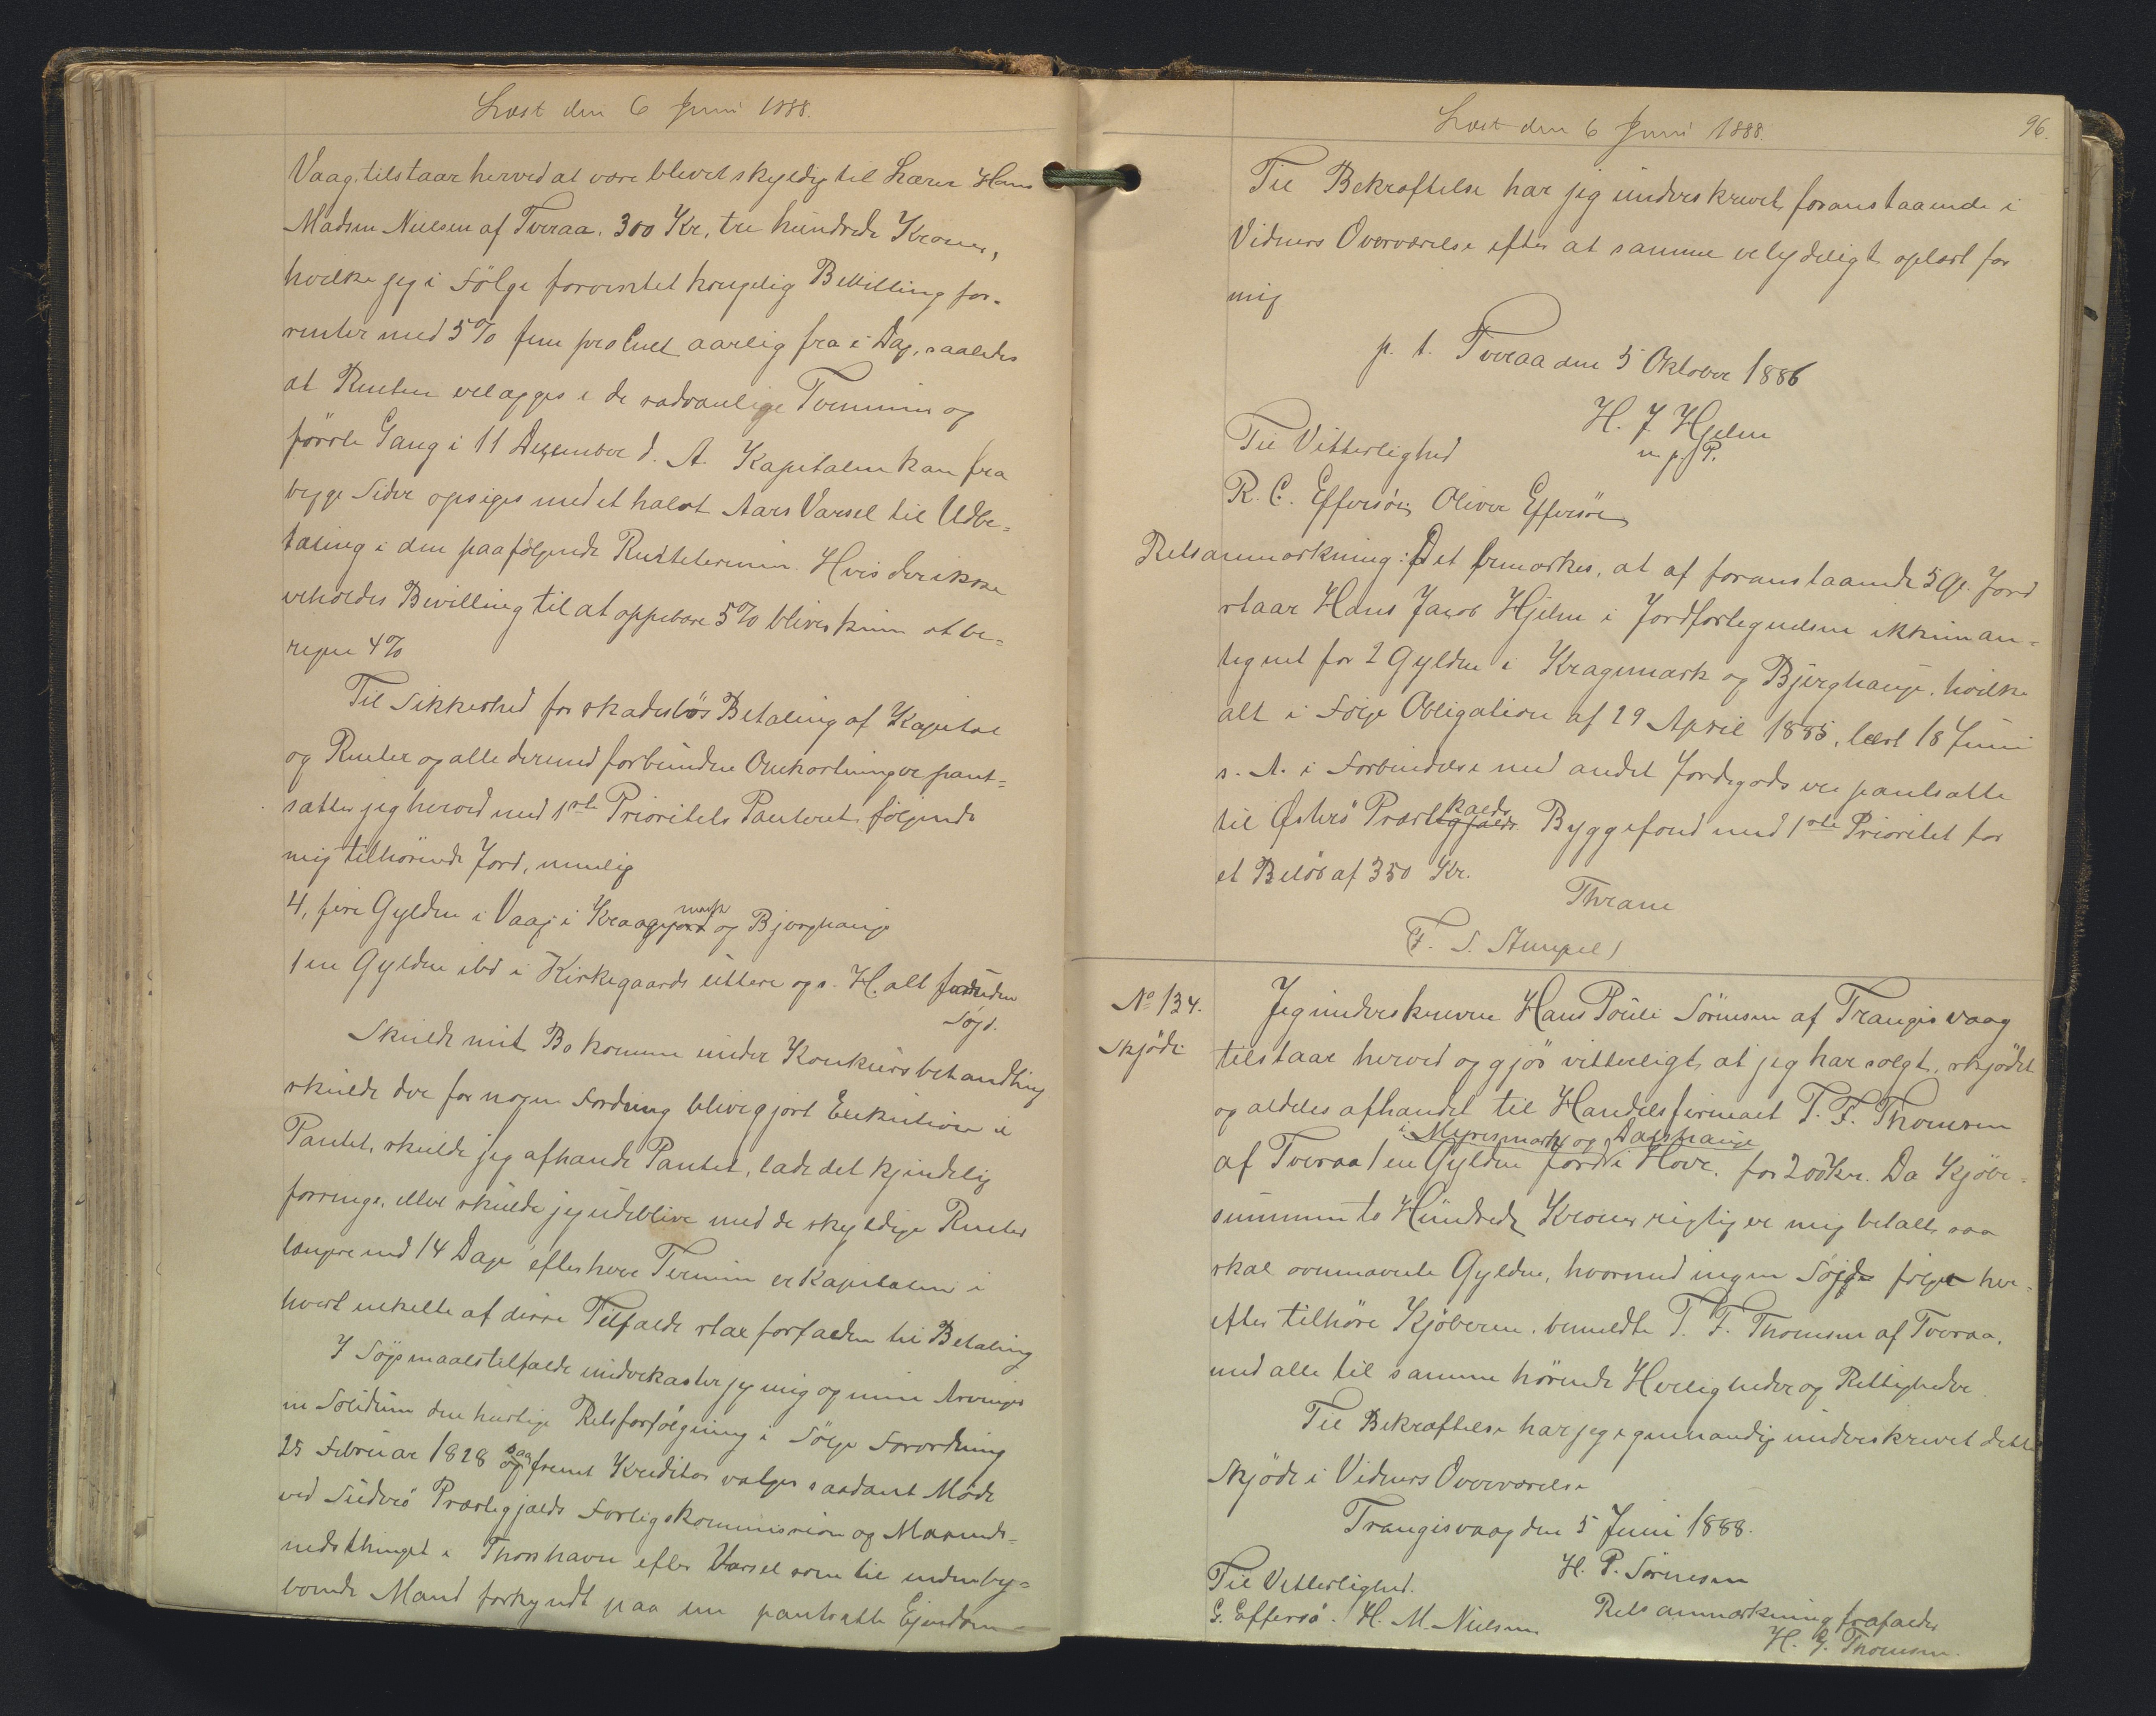 Læst den 6 Juni 1888.
Vaag, tilstaar herved at være blevet skyldig til Lærer Hans
Madsen Nielsen af Tveraa, 300 Kr, tre hundrede Kroner,
hvilke jeg i Følge forventet kongelig Bevilling for-
renter med 5% fem pro Cent aarlig fra i Dag, saaledes
at Renten erlægges i de sædvanlige Terminer og
første Gang i 11 December d. A. Kapitalen kan fra
begge Sider opsiges med et halvt Aars Varsel til Udbe-
taling i den paafølgende Rentetermin. Hvis der ikke
erholdes Bevilling til at oppebære 5% bliver kun at be-
regne 4%
Til Sikkerhed for skadesløs Betaling af Kapital
og Renter og alle dermed forbundne Omkostninger pant-
sætter jeg herved med 1ste Prioritets Panteret følgende
mig tilhørende Jord, nemlig
4, fire Gylden i Vaag i Kraagemark og Bjerghauge
1 en Gylden ibd i Kirkegaards ittere og s. H. alt foruden
Søjd.
Skulde mit Bo komme under Konkursbehandling
skulde der for nogen Fordring blive gjort Exekution i
Pantet, skulde jeg afhænde Pantet, lade det kjendelig
forringe, eller skulde jeg udeblive med de skyldige Renter
længere end 14 Dage efter hver Termin er Kapitalen i
hvert enkelte af disse Tilfælde strax forfalden til Betaling
I Søgsmaalstilfælde underkaster jeg mig og mine Arvinger
in Solidum den hurtige Retsforfølgning i Følge Forordning
25 Februar 1828 saafremt Kreditor vælger saadant Møde
ved Suderø Præstegjælds Forligskommission og Mænds-
nedsthinget i Thorshavn efter Varsel som til indenby-
boende Mand forkyndt paa den pantsatte Ejendom
Læst den 6 Juni 1888.
96.
Til Bekræftelse har jeg underskrevet foranstaaende i
Vidners Overværelse efter at samme er lydeligt oplæst for
mig
p. t. Tveraa den 5 Oktober 1886
H. J. Hjelm
m. p. P.
Til Vitterlighed
R. C. Effersøe, Oliver Effersøe
Retsanmærkning: Det bemærkes, at af foranstaaende 5 Gl. Jord
staar Hans Jacob Hjelm i Jordfortegnelsen ikkun an-
tegnet for 2 Gylden i Kragemark og Bjerghauge, hvilke
alt i Følge Obligation af 29 April 1885, læst 18 Juni
s. A. i Forbindelse med andet Jordegods ere pantsatte
til Østerø Præstekalds Byggefond med 1ste Prioritet for
et Beløb af 350 Kr.
Thrane
(F. S. Stempel)
No 134.
Skjøde
Jeg underskrevne Hans Pouli Sørensen af Trangisvaag
tilstaar herved og gjør vitterligt, at jeg har solgt, skjødet
og aldeles afhændet til Handelsfirmaet T. F. Thomsen
i Myresmark og Dagshauge
af Tveraa 1 en Gylden Jord i Hove, for 200 Kr. Da Kjøbe-
summen to Hundrede Kroner rigtig er mig betalt, saa
skal ovennævnte Gylden, hvormed ingen Søjde følger her-
efter tilhøre Kjøberen, bemeldte T. F. Thomsen af Tveraa,
med alle til samme hørende Herligheder og Rettigheder.
Til Bekræftelse har jeg egenhændig underskrevet dette
Skjøde i Vidners Overværelse
Trangisvaag den 5 Juni 1888.
H. P. Sørensen
Til Vitterlighed.
G. Effersø. H. M. Nielsen
Retsanmærkning frafaldes
H. G. Thomsen.